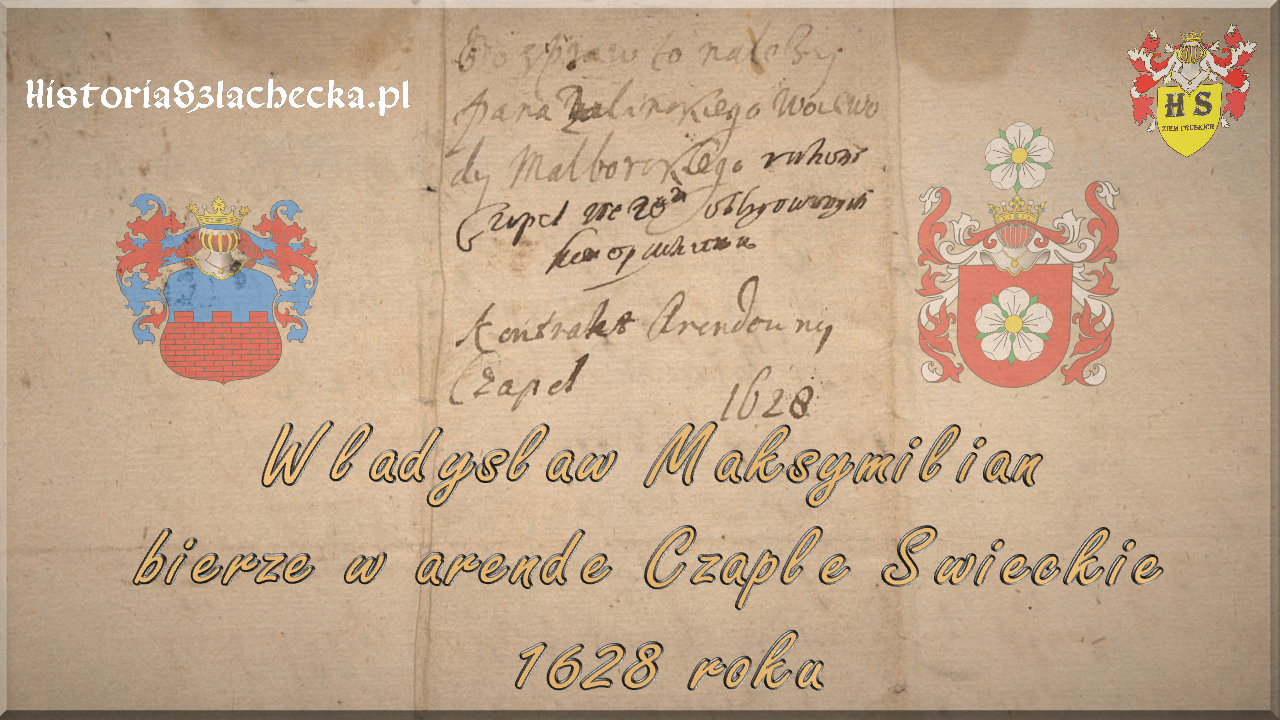 HistoriaSzlachecka.pl
H S
Do spraw to należy
Pana Zalinskiego Woiewo
dy Malborskiego
Czapel
Kontrakt Arendowny
Czapel
1628
Wladyslaw Maksymilian
bierze w arende Czaple Swieckie
1628 roku